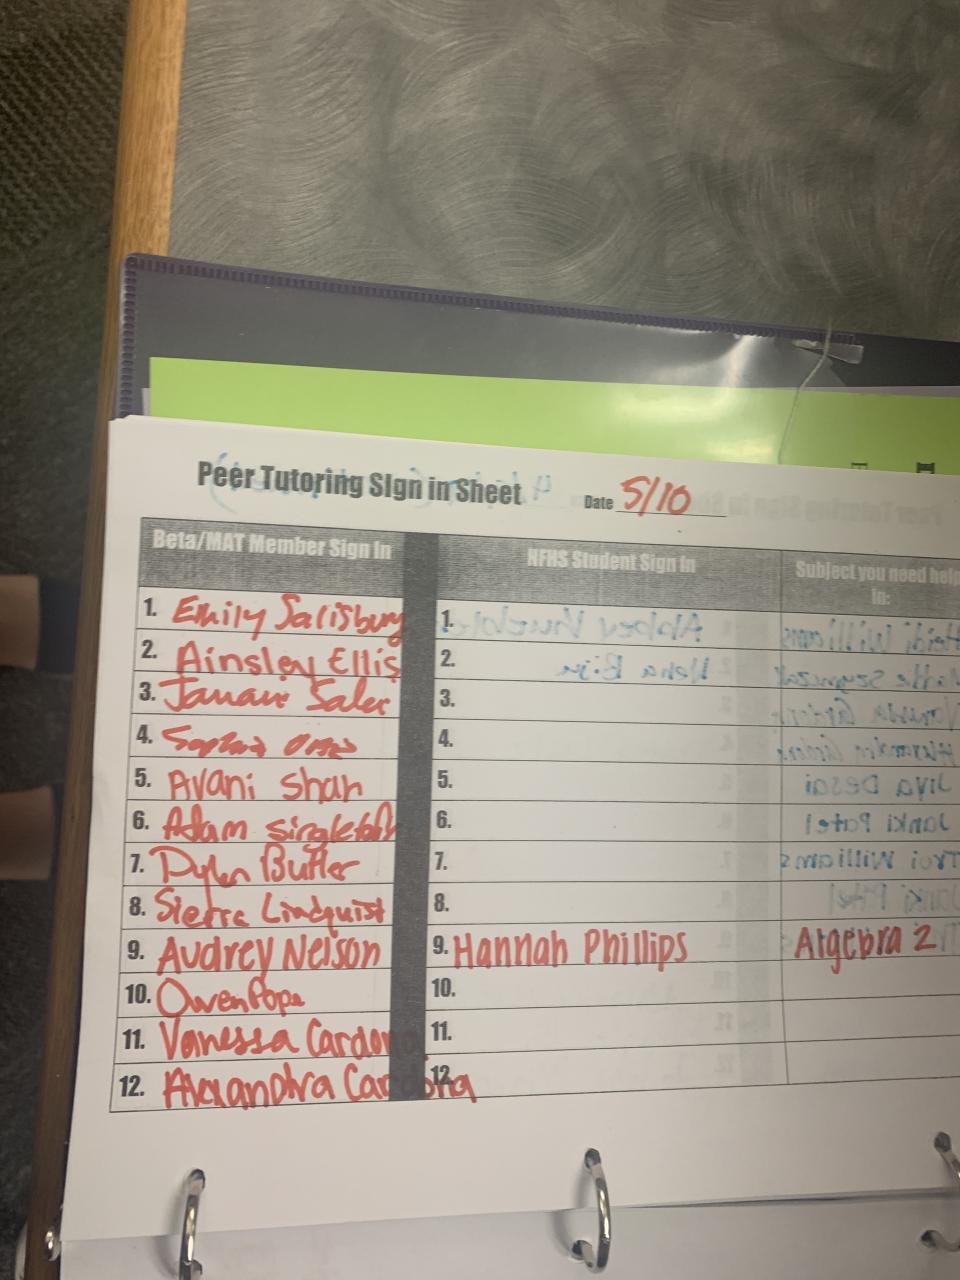 Peer Tutoring SIgn in Sheet Date 5/10
Beta/MAT Member Sign In NFHS Student Sign In Subject you need help in:
1. Emily Salisbury 1.
2. Ainsley Ellis 2.
3. 3.
4. 4.
5. Avani Shah 5.
6. Adam singleton 6.
7. Dylan Butler 7.
8. Sierra Lindquist 8.
9. Audrey Nelson 9. Hannah Phillips Algebra 2
10. Owen Pope 10.
11. Vanessa Cardona 11.
12. Alexandra Cardona 12.